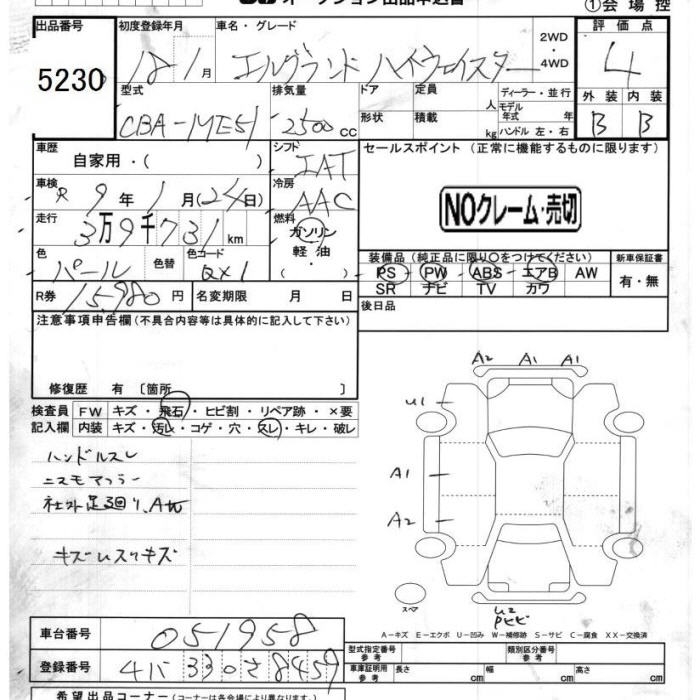 オークション出品申込書
①会場控
出品番号
5230
初度登録年月
18-1月
車名・グレード
エルグランド ハイウェイスター
2WD
・
4WD
評価点
4
外装 内装
B B
型式
CBA-ME51
排気量
2500 cc
ドア 定員 人
形状 積載 kg
ディーラー・並行
モデル年式 年
ハンドル 左・右
車歴
自家用・( )
シフト
IAT
車検
R9年1月(24日)
冷房
AAC
走行
3万9千731km
燃料
ガソリン
軽油
・
( )
色
パール
色替
色コード
QX1
R券 15,980円
名変期限 月 日
セールスポイント (正常に機能するものに限ります)
NOクレーム・売切
装備品 (純正品に限り○をつけてください)
PS PW ABS エアB AW
SR ナビ TV カワ
新車保証書
有・無
後日品
注意事項申告欄 (不具合内容等は具体的に記入して下さい)
修復歴 有 〔箇所 〕
検査員
記入欄
FW キズ・飛石・ヒビ割・リペア跡・×要
内装 キズ・汚レ・コゲ・穴・スレ・キレ・破レ
ハンドルスレ
ニスモマフラー
社外足廻り、
キズ
A2 A1 A1
U1
A1
A2
スペア
U2
A-キズ E-エクボ U-凹み W-補修跡 S-サビ C-腐食 XX-交換済
車台番号 051958
登録番号 330さ8459
型式指定番号
参考
類別区分番号
参考
車庫証明用
参考
長さ cm 幅 cm 高さ cm
希望出品コーナー (コーナーは各会場により異なります)